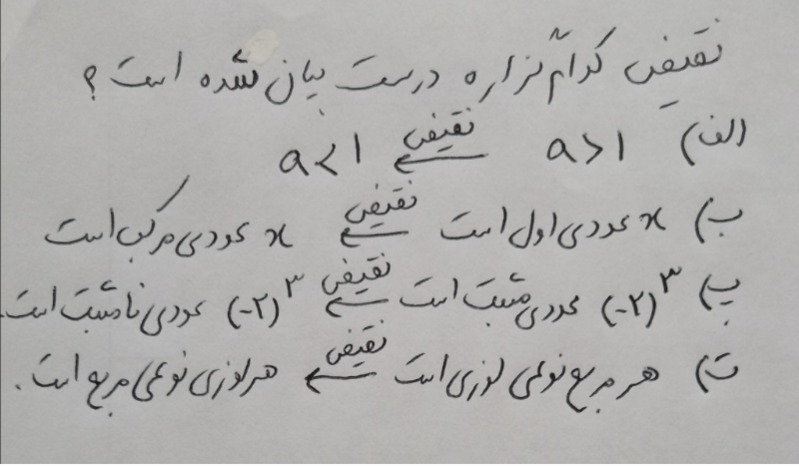 نقیض کدام گزاره درست بیان نشده است؟
الف) a>1 نقیض ← a<1
ب) x عددی اول است نقیض ← x عددی مرکب است
پ) (-۲)^۳ عددی مثبت است نقیض ← (-۲)^۳ عددی نامثبت است.
ت) هر مربع نوعی لوزی است نقیض ← هر لوزی نوعی مربع است.